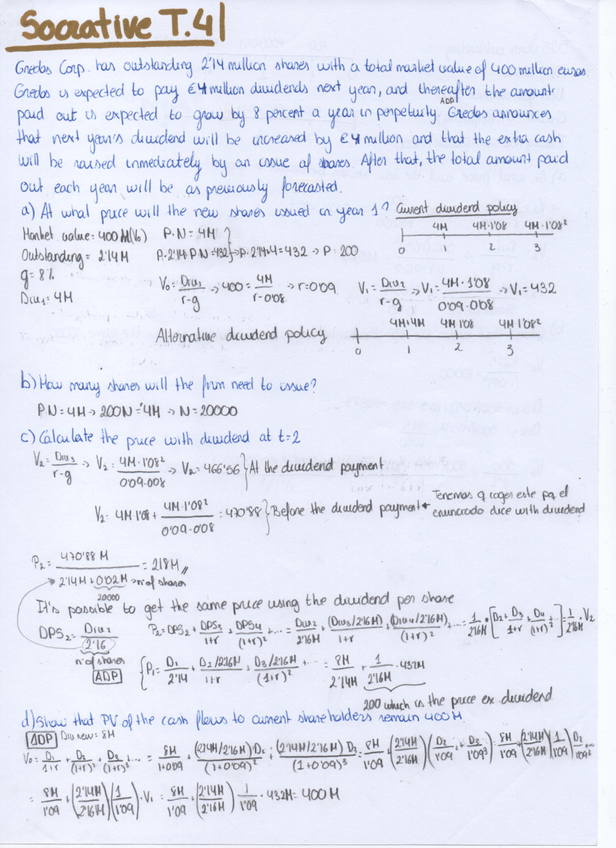 Socrative T.4
Gredos Corp. has outstanding 2'14 million shares with a total market value of 400 million euros.
Gredos is expected to pay €4 million dividends next year, and thereafter the amount
paid out is expected to grow by 8 percent a year in perpetuity. Gredos announces
ADP
that next year's dividend will be increased by €4 million and that the extra cash
will be raised inmediately by an issue of shares. After that, the total amount paid
out each year will be as previously forecasted.
a) At what price will the new shares issued in year 1? Current dividend policy
Market value = 400M (V0) P·N = 4M
4M 4M·1'08 4M·1'08²
0 1 2 3
Outstanding = 2'14M P·2'14+P·N=432 → P·2'14+4=432 → P=200
g = 8%
Div1 = 4M V0 = Div1/r-g → 400 = 4M/r-0'08 → r=0'09 V1 = Div2/r-g → V1 = 4M·1'08/0'09-0'08 → V1 = 432
Alternative dividend policy
4M+4M 4M·1'08 4M·1'08²
0 1 2 3
b) How many shares will the firm need to issue?
P·N=4M → 200N=4M → N=20000
c) Calculate the price with dividend at t=2
V2 = Div3/r-g → V2 = 4M·1'08²/0'09-0'08 → V2 = 466'56 } At the dividend payment
V2 = 4M·1'08 + 4M·1'08²/0'09-0'08 = 470'88 } Before the dividend payment
Tenemos q coger este pq el
enunciado dice with dividend
P2 = 470'88M/2'14M+0'02M = 218M
→ nº of shares
20000
It's possible to get the same price using the dividend per share
DPS2 = Div2/2'16 P2 = DPS2 + DPS3/1+r + DPS4/(1+r)² ... = Div2/2'16M + (Div3/2'16M)/1+r + (Div4/2'16M)/(1+r)² ... = 1/2'16M · [D2 + D3/1+r + D4/(1+r)²] = 1/2'16M · V2
nº of shares
ADP
P1 = D1/2'14 + D2/2'16M/1+r + D3/2'16M/(1+r)² ... = 8M/2'14M + 1/2'16M · 432M
200 which is the price ex dividend
d) Show that PV of the cash flows to current shareholders remain 400M.
ADP Div new = 8M
V0 = D1/1+r + D2/(1+r)² + D3/(1+r)³ ... = 8M/1+0'09 + (2'14M/2'16M)D2/(1+0'09)² + (2'14M/2'16M)D3/(1+0'09)³ = 8M/1'09 + (2'14M/2'16M)(D2/1'09² + D3/1'09³) = 8M/1'09 + (2'14M/2'16M)(1/1'09)
= 8M/1'09 + (2'14M/2'16M)(1/1'09)·V1 = 8M/1'09 + (2'14M/2'16M) 1/1'09 · 432M = 400M